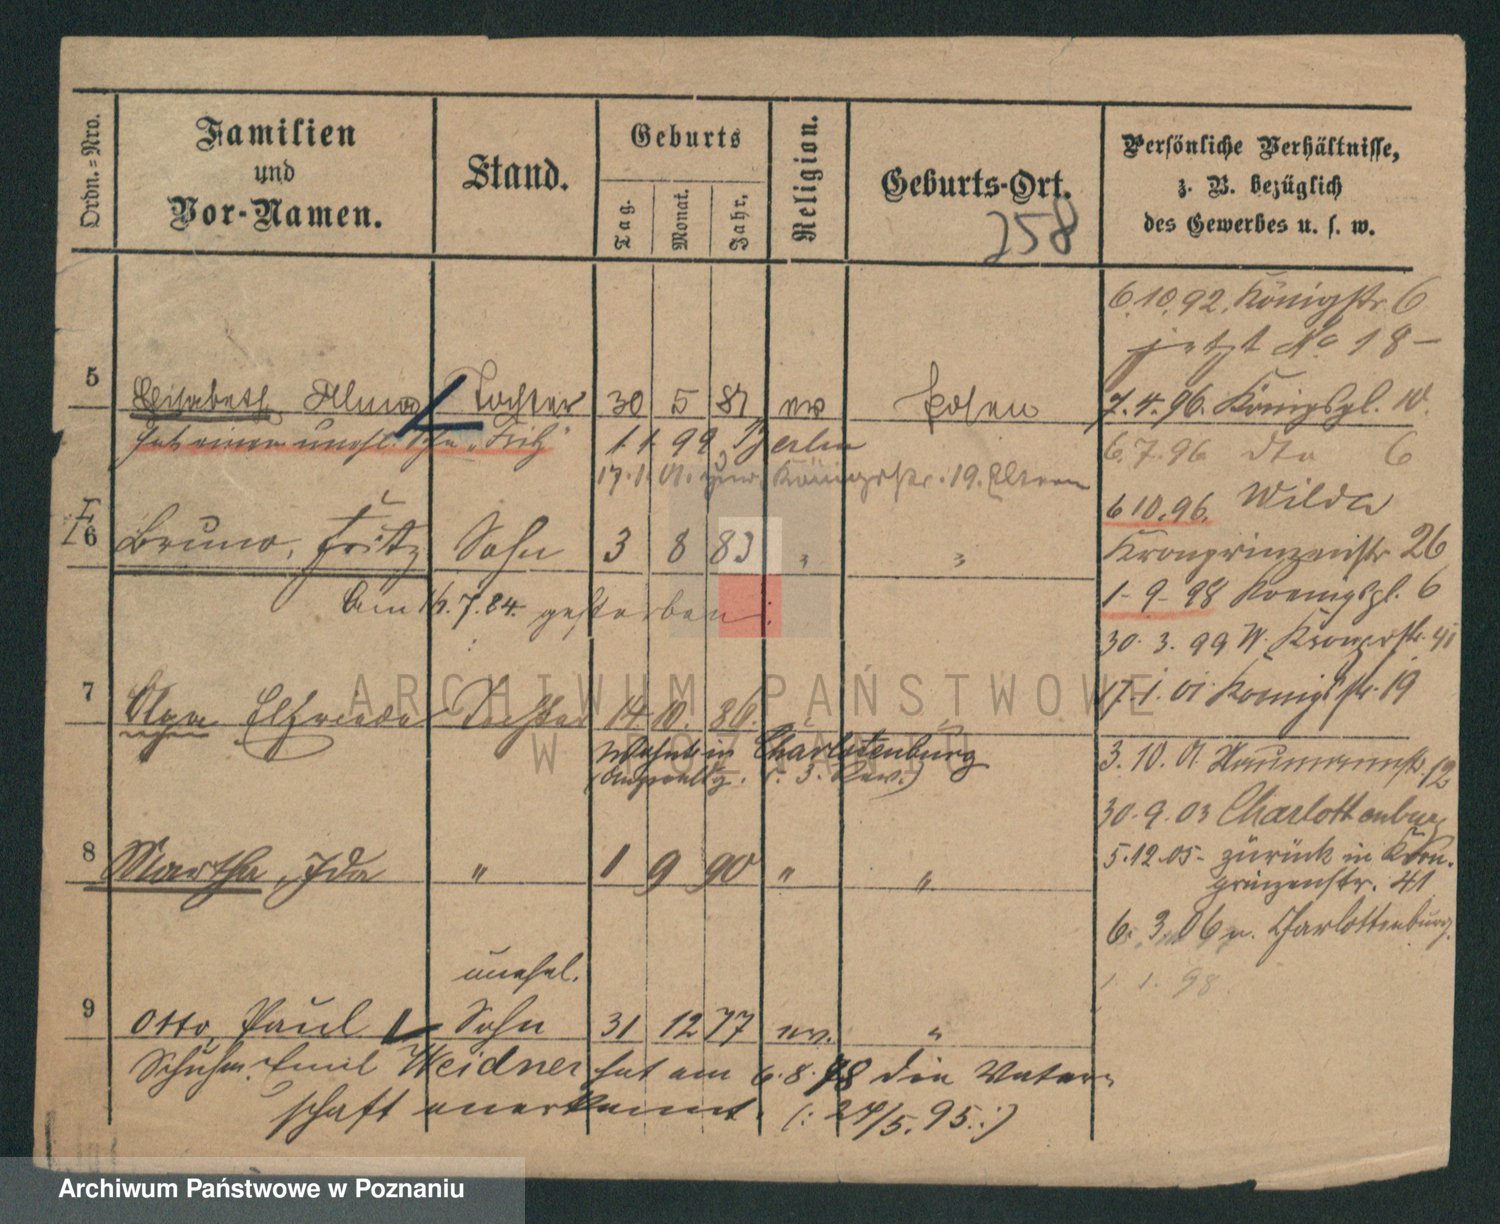 Ordn.=Nro.
Familien
und
Vor-Namen.
Stand.
Geburts
Tag.
Monat.
Jahr.
Religion.
Geburts-Ort.
258
Persönliche Verhältnisse,
z. B. bezüglich
des Gewerbes u. s. w.
6.10.92. Königstr. 6
jetzt No 18 –
5 Elisabeth Alma Tochter 30 5 81 ev Posen
7.4.96. Königspl. 10.
hat einen unehl. Sohn „Fritz" 1 1 99, Berlin
6.7.96 dto 6
17.1.01. Königstr. 19. Eltern
6 10.96. Wilda
6 Bruno, Fritz Sohn 3 8 83 " "
Kronprinzenstr 26
Am 16.7.84. gestorben.
1-9-98 Koenigspl. 6
30.3.99 W. Kronprstr. 41
7 Olga Elfriede Tochter 14 10. 86.
17.1.01 Koenigstr. 19
Wohnt in Charlottenburg
3.10.01 Naumannstr. 12
30.9.03 Charlottenburg
8 Martha, Ida " 1 9 90 " "
5.12.05- zurück in Kron-
prinzenstr. 41
6. 3. 06 n. Charlottenburg.
1. 1. 98
unehel.
9 Otto, Paul Sohn 31 12 77 ev. "
Schuhm. Emil Weidner hat am 6.8.78 die Vater-
schaft anerkannt. (: 24/5. 95.:)
ARCHIWUM PAŃSTWOWE
W POZNANIU
Archiwum Państwowe w Poznaniu